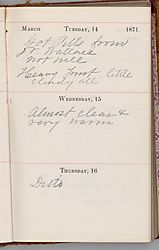 MARCH TUESDAY, 14 1871.
Got Pills from
Dr Wallace
not well
Heavy frost little
cloudy all
WEDNESDAY, 15
Almost clear &
very warm
THURSDAY, 16
Ditto